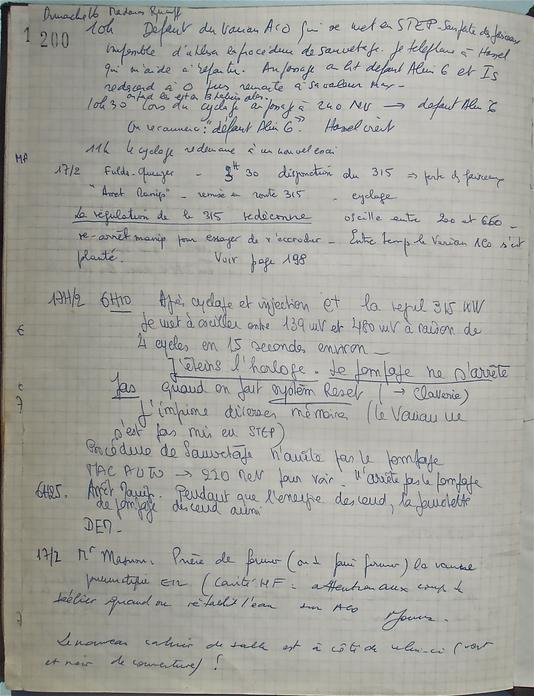 Dimanche 16
200
10h Défaut du Varian ACO qui se met en STEP. Sans perte de faisceau
impossible d'utiliser la procédure de sauvetage. Je téléphone à Hassel
qui m'aide à répartir. Au passage on lit défaut Alim 6 et Is
redescend à 0 puis remonte à sa valeur
10h30 Lors du cyclage au passage à 240 MeV → défaut Alim 6
On recommence: "défaut Alim 6". Hassel vient
11h le cyclage redémarre à un nouvel essai
17/2 30 disjonction du 315 ⇒ perte du faisceau
"Arrêt Manip" - remise en route 315 - cyclage
La régulation de la 315 redéconne oscille entre 200 et 660 -
re-arrêt manip pour essayer de réaccrocher - Entre temps le Varian ACO s'est
planté. Voir page 198
17H/2 6H10 Après cyclage et injection et la regul 315 KW
se met à osciller entre 139 mV et 480 mV à raison de
4 cycles en 15 secondes environ -
J'éteins l'horloge. Le pompage ne s'arrête
pas quand on fait System Reset (→ Claverie)
J'imprime diverses mémoires (le Varian ne
s'est pas mis en STEP)
Procédure de Sauvetage n'arrête pas le pompage
MAC AUTO → 220 MeV pour voir. N'arrête pas le pompage
6H25. Arrêt Manip. Pendant que l'énergie descend, la
de pompage descend aussi
DEM -
17/2 Mr Masson. Prière de fermer (ou de faire fermer) la vanne
pneumatique (Cavité HF - attention aux coups de
bélier quand on rétablit l'eau sur ACO
Le nouveau cahier de salle est à côté de celui-ci (vert
et noir de couverture) !